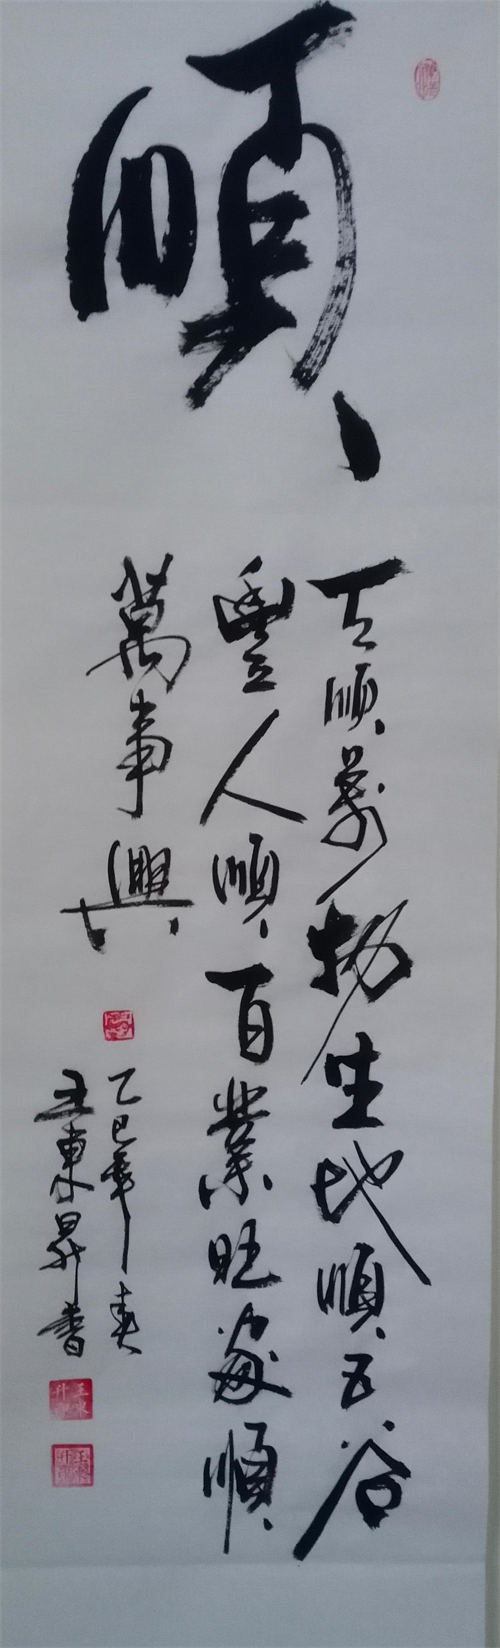 順
天順萬物生地順五谷
豐人順百業旺家順
萬事興
乙巳年春
王東昇書